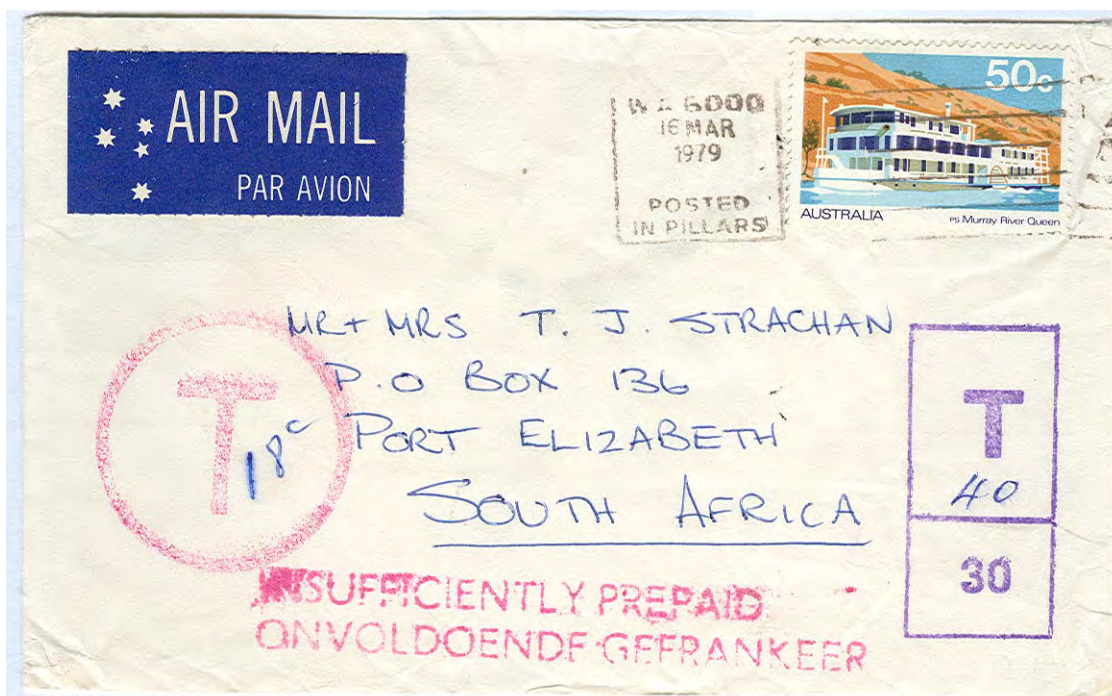 AIR MAIL
PAR AVION
W A 6000
16 MAR
1979
POSTED
IN PILLARS
50c
AUSTRALIA
PS Murray River Queen
MR + MRS T. J. STRACHAN
P.O BOX 136
PORT ELIZABETH
SOUTH AFRICA
T
18c
T
40
30
INSUFFICIENTLY PREPAID
ONVOLDOENDE GEFRANKEER